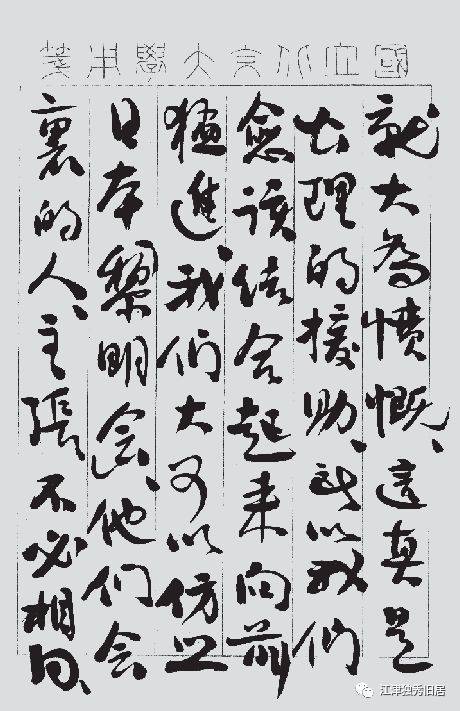 國立北京大學用箋
就大為憤慨、這真是
公理的援助、所以我们
愈該结合起来向前
猛進、我们大可以仿照
日本黎明会、他们会
裏的人、主張不必相同、
江津独秀旧居